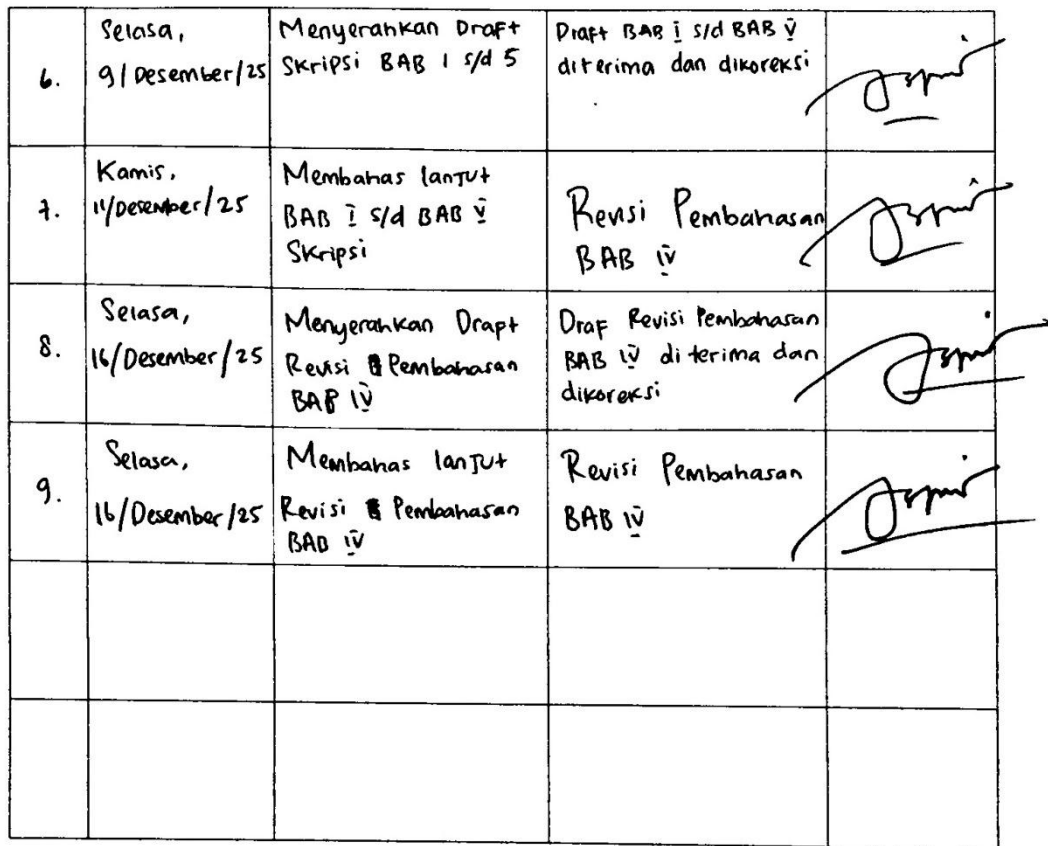 6.
Selasa,
9/Desember/25
Menyerahkan Draft
Skripsi BAB I s/d 5
Draft BAB I s/d BAB V
diterima dan dikoreksi
7.
Kamis,
11/Desember/25
Membahas lanjut
BAB I s/d BAB V
Skripsi
Revisi Pembahasan
BAB IV
8.
Selasa,
16/Desember/25
Menyerahkan Drapt
Revisi Pembahasan
BAB IV
Draf Revisi Pembahasan
BAB IV di terima dan
dikoreksi
9.
Selasa,
16/Desember/25
Membahas lanjut
Revisi Pembahasan
BAB IV
Revisi Pembahasan
BAB IV